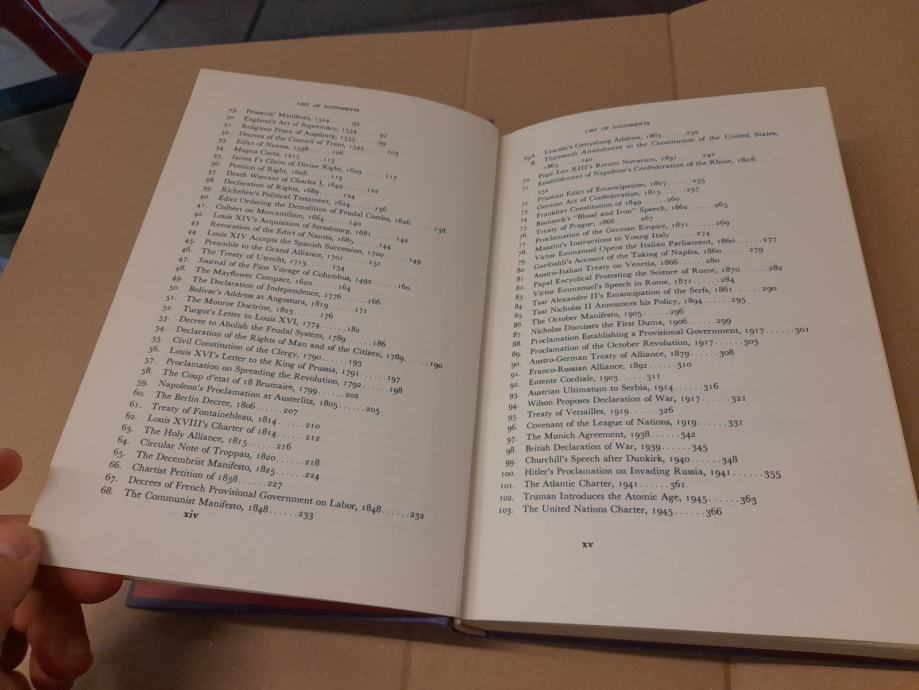 LIST OF DOCUMENTS
29. Peasants' Manifesto, 1524......93
30. England's Act of Supremacy, 1534......97
31. Religious Peace of Augsburg, 1555......99
32. Decrees of the Council of Trent, 1545......103
33. Edict of Nantes, 1598......106
34. Magna Carta, 1215......113
35. James I's Claim of Divine Right, 1609......117
36. Petition of Right, 1628......119
37. Death Warrant of Charles I, 1649......122
38. Declaration of Rights, 1689......124
39. Richelieu's Political Testament, 1624......136
40. Edict Ordering the Demolition of Feudal Castles, 1626......138
41. Colbert on Mercantilism, 1664......140
42. Louis XIV's Acquisition of Strasbourg, 1681......142
43. Revocation of the Edict of Nantes, 1685......144
44. Louis XIV Accepts the Spanish Succession, 1700......149
45. Preamble to the Grand Alliance, 1701......151
46. The Treaty of Utrecht, 1713......154
47. Journal of the First Voyage of Columbus, 1492......160
48. The Mayflower Compact, 1620......164
49. The Declaration of Independence, 1776......166
50. Bolivar's Address at Angostura, 1819......171
51. The Monroe Doctrine, 1823......176
52. Turgot's Letter to Louis XVI, 1774......182
53. Decree to Abolish the Feudal System, 1789......186
54. Declaration of the Rights of Man and of the Citizen, 1789......190
55. Civil Constitution of the Clergy, 1790......193
56. Louis XVI's Letter to the King of Prussia, 1791......197
57. Proclamation on Spreading the Revolution, 1792......198
58. The Coup d'etat of 18 Brumaire, 1799......202
59. Napoleon's Proclamation at Austerlitz, 1805......205
60. The Berlin Decree, 1806......207
61. Treaty of Fontainebleau, 1814......210
62. Louis XVIII's Charter of 1814......212
63. The Holy Alliance, 1815......216
64. Circular Note of Troppau, 1820......218
65. The Decembrist Manifesto, 1825......224
66. Chartist Petition of 1838......227
67. Decrees of French Provisional Government on Labor, 1848......232
68. The Communist Manifesto, 1848......233
xiv
LIST OF DOCUMENTS
69A. Lincoln's Gettysburg Address, 1863......239
B. Thirteenth Amendment to the Constitution of the United States,
1865......240
70. Pope Leo XIII's Rerum Novarum, 1891......242
71. Establishment of Napoleon's Confederation of the Rhine, 1806......
252
72. Prussian Edict of Emancipation, 1807......255
73. German Act of Confederation, 1815......257
74. Frankfurt Constitution of 1849......260
75. Bismarck's "Blood and Iron" Speech, 1862......265
76. Treaty of Prague, 1866......267
77. Proclamation of the German Empire, 1871......269
78. Mazzini's Instructions to Young Italy......274
79. Victor Emmanuel Opens the Italian Parliament, 1860......277
80. Garibaldi's Account of the Taking of Naples, 1860......279
81. Austro-Italian Treaty on Venetia, 1866......280
82. Papal Encyclical Protesting the Seizure of Rome, 1870......282
83. Victor Emmanuel's Speech in Rome, 1871......284
84. Tsar Alexander II's Emancipation of the Serfs, 1861......290
85. Tsar Nicholas II Announces his Policy, 1894......295
86. The October Manifesto, 1905......296
87. Nicholas Dismisses the First Duma, 1906......299
88. Proclamation Establishing a Provisional Government, 1917......301
89. Proclamation of the October Revolution, 1917......303
90. Austro-German Treaty of Alliance, 1879......308
91. Franco-Russian Alliance, 1892......310
92. Entente Cordiale, 1903......311
93. Austrian Ultimatum to Serbia, 1914......316
94. Wilson Proposes Declaration of War, 1917......321
95. Treaty of Versailles, 1919......326
96. Covenant of the League of Nations, 1919......331
97. The Munich Agreement, 1938......342
98. British Declaration of War, 1939......345
99. Churchill's Speech after Dunkirk, 1940......348
100. Hitler's Proclamation on Invading Russia, 1941......355
101. The Atlantic Charter, 1941......361
102. Truman Introduces the Atomic Age, 1945......363
103. The United Nations Charter, 1945......366
xv